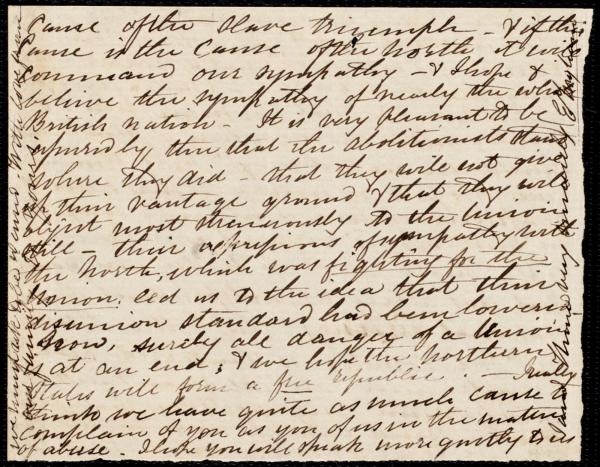 Cause of the Slave triumph - & if this
Cause is the Cause of the North it will
command our sympathy - & I hope &
believe the sympathy of nearly the whole
British nation - It is very pleasant to be
assured by thee that the abolitionists stand
where they did - that they will not give
up their vantage ground & that they will
object most strenuously to the Union
still - their expressions of sympathy with
the North, which was fighting for the
Union, led us to the idea that their
disunion standard had been lowered
Now, surely all danger of a Union
is at an end, & we hope the Northern
States will form a free republic. - Really
I think we have quite as much cause to
complain of you as you of us in the matter
of abuse. I hope you will speak more gently to us
and
very
sincerely
with love from